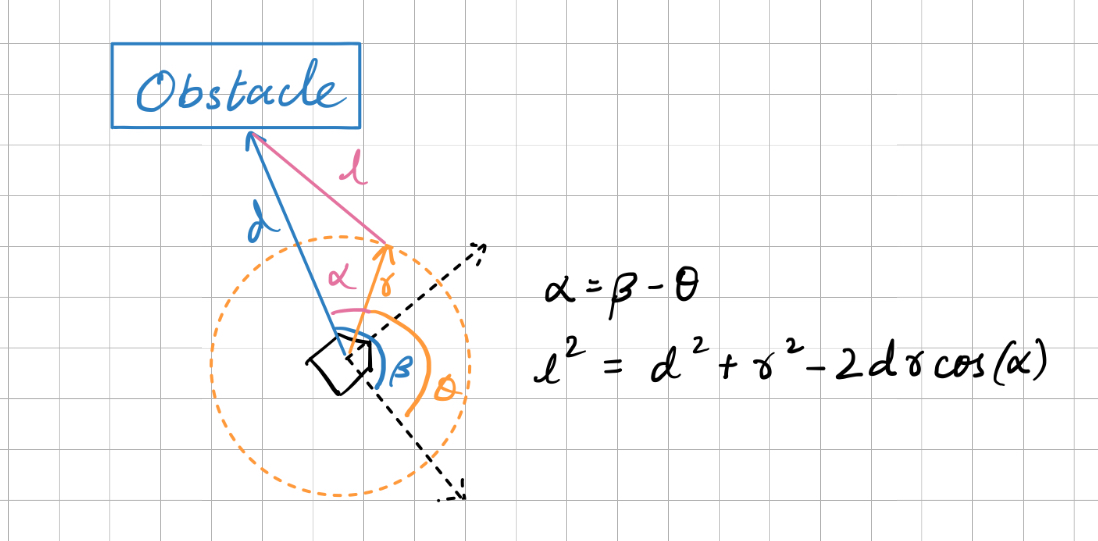 Obstacle
l
d
α
r
β
θ
α = β - θ
l² = d² + r² - 2 d r cos(α)